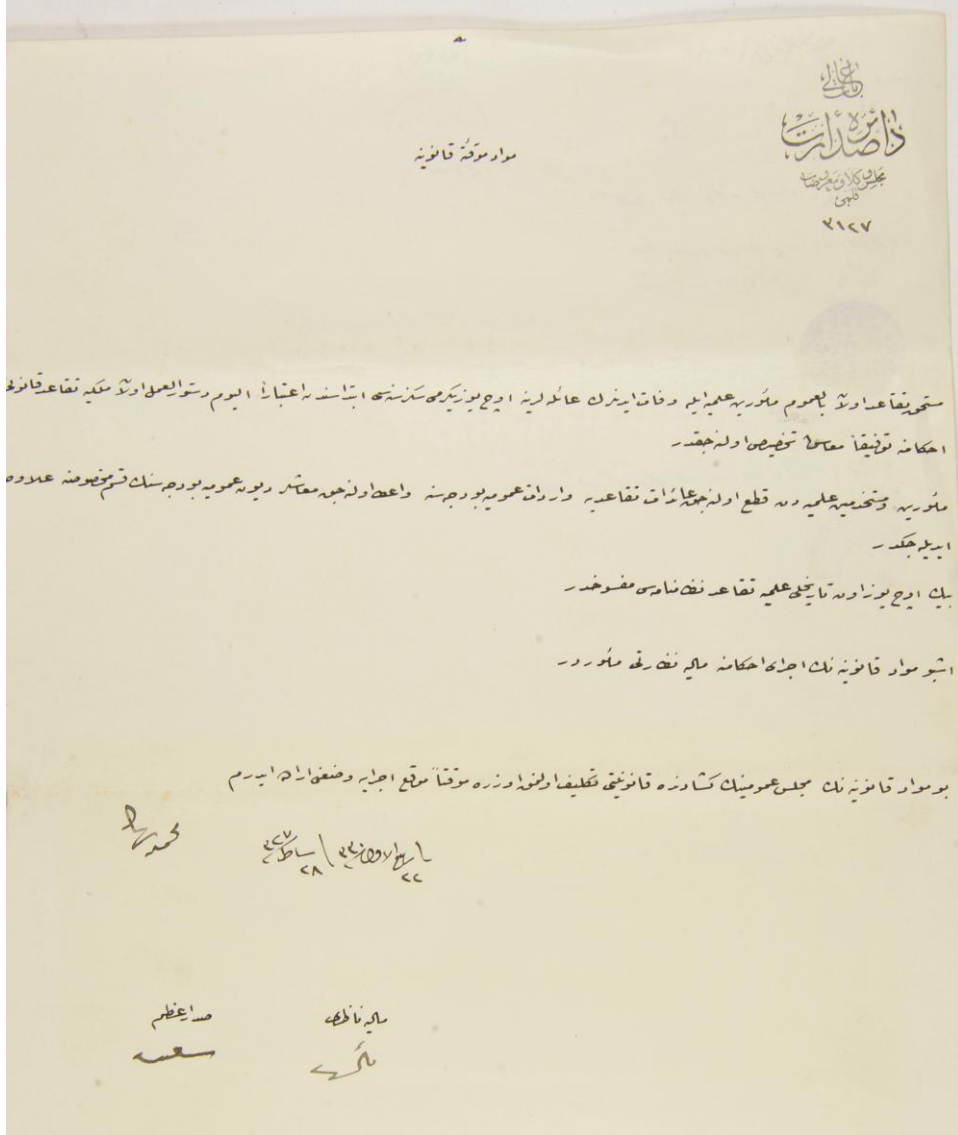 باب عالی
دائره صدارت
مجلس وکلا و معروضات
قلمی
٣١٢٧
مواد موقتهٔ قانونیه
مستحق تقاعد اولان بالعموم مأمورین علمیه ایله وفات ایدنلرك عائله لرینه اوچ یوز یکرمی سکز سنه سی ابتداسندن اعتباراً الیوم دستور العمل اولان ملکیه تقاعد قانونی
احکامنه توفیقاً معاش تخصیص اولنه جقدر
مأمورین و مستخدمین علمیه دن قطع اولنه جق عائدات تقاعدیه واردات عمومیه بودجه سنه واعطا اولنه جق معاشلر دیون عمومیه بودجه سنك قسم مخصوصنه علاوه
ایدیله جکدر
بیك اوچ یوز اون تاریخلی علمیه تقاعد نظامنامه سی مفسوخدر
اشبو مواد قانونیه نك اجرای احکامنه مالیه نظارتی مأموردر
بو مواد قانونیه نك مجلس عمومینك کشادنده قانونیتی تکلیف اولنمق اوزره موقتاً موقع اجرایه وضعنی اراده ایدرم
٢٢ ربیع الاول ٣٣٠ / ٢٨ شباط ٣٢٧
محمد رشاد
مالیه ناظری صدر اعظم
سعید